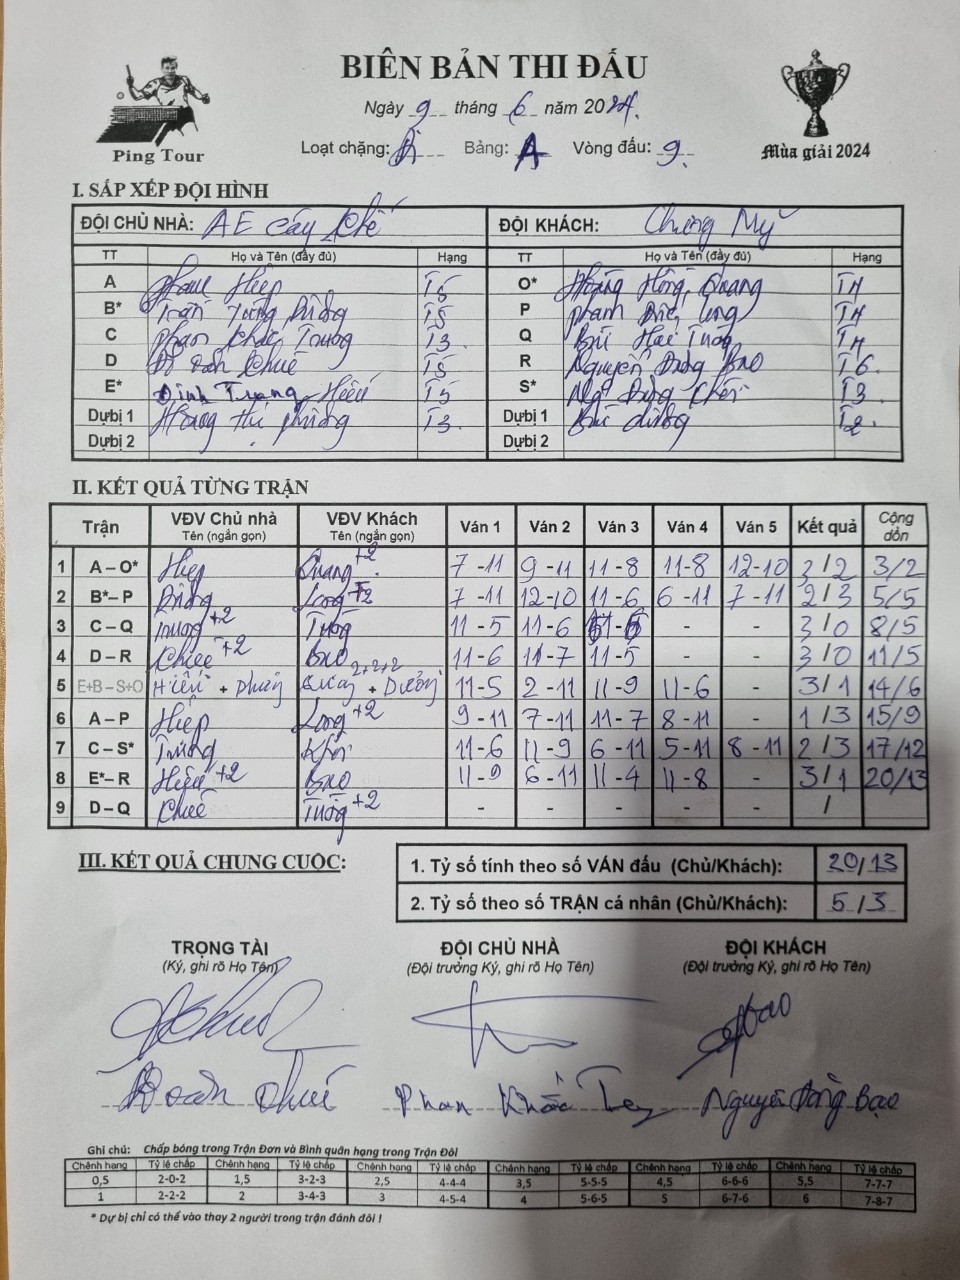 BIÊN BẢN THI ĐẤU
Ping Tour
Mùa giải 2024
Ngày 9 tháng 6 năm 2024.
Loạt chặng: Bảng: A Vòng đấu: 9.
I. SẮP XẾP ĐỘI HÌNH
ĐỘI CHỦ NHÀ: AE Cây Chế ĐỘI KHÁCH: Chương Mỹ
TT Họ và Tên (đầy đủ) Hạng TT Họ và Tên (đầy đủ) Hạng
A Hiệp T5 O* Hoàng Hồng Quang T4
B* Trần Dũng T5 P Phạm Long T4
C Phan Khắc Trường T3. Q Bùi Tường T4
D Đỗ Doãn Chuế T5 R Nguyễn Đăng Bạo T6.
E* Đinh Trung Hiếu T5 S* Ngô Khôi T3.
Dự bị 1 Hoàng thị phượng T3. Dự bị 1 Bùi dưỡng T2.
Dự bị 2 Dự bị 2
II. KẾT QUẢ TỪNG TRẬN
Trận VĐV Chủ nhà Tên (ngắn gọn) VĐV Khách Tên (ngắn gọn) Ván 1 Ván 2 Ván 3 Ván 4 Ván 5 Kết quả Cộng dồn
1 A – O* Hiệp Quang +2 7 - 11 9 - 11 11 - 8 11 - 8 12 - 10 3 / 2 3/2
2 B* – P Dũng Long +2 7 - 11 12 - 10 11 - 6 6 - 11 7 - 11 2 / 3 5/5
3 C – Q Trường +2 Tường 11 - 5 11 - 6 - - 3 / 0 8/5
4 D – R Chuế +2 Bạo 11 - 6 11 - 7 11 - 5 - - 3 / 0 11/5
5 E+B – S+O Hiếu + Phượng Quang + Dưỡng 2+2+2 11 - 5 2 - 11 11 - 9 11 - 6 - 3 / 1 14/6
6 A – P Hiệp Long +2 9 - 11 7 - 11 11 - 7 8 - 11 - 1 / 3 15/9
7 C – S* Trường Khôi 11 - 6 11 - 9 6 - 11 5 - 11 8 - 11 2 / 3 17/12
8 E* – R Hiếu +2 Bạo 11 - 9 6 - 11 11 - 4 11 - 8 - 3 / 1 20/13
9 D – Q Chuế Tường +2 - - - - - /
III. KẾT QUẢ CHUNG CUỘC:
1. Tỷ số tính theo số VÁN đấu (Chủ/Khách): 20/13
2. Tỷ số theo số TRẬN cá nhân (Chủ/Khách): 5/3
TRỌNG TÀI ĐỘI CHỦ NHÀ ĐỘI KHÁCH
(Ký, ghi rõ Họ Tên) (Đội trưởng Ký, ghi rõ Họ Tên) (Đội trưởng Ký, ghi rõ Họ Tên)
Đỗ Doãn Chuế Phan Khắc Nguyễn Đăng Bạo
Ghi chú: Chấp bóng trong Trận Đơn và Bình quân hạng trong Trận Đôi
Chênh hạng Tỷ lệ chấp Chênh hạng Tỷ lệ chấp Chênh hạng Tỷ lệ chấp Chênh hạng Tỷ lệ chấp Chênh hạng Tỷ lệ chấp Chênh hạng Tỷ lệ chấp
0,5 2-0-2 1,5 3-2-3 2,5 4-4-4 3,5 5-5-5 4,5 6-6-6 5,5 7-7-7
1 2-2-2 2 3-4-3 3 4-5-4 4 5-6-5 5 6-7-6 6 7-8-7
* Dự bị chỉ có thể vào thay 2 người trong trận đánh đôi !